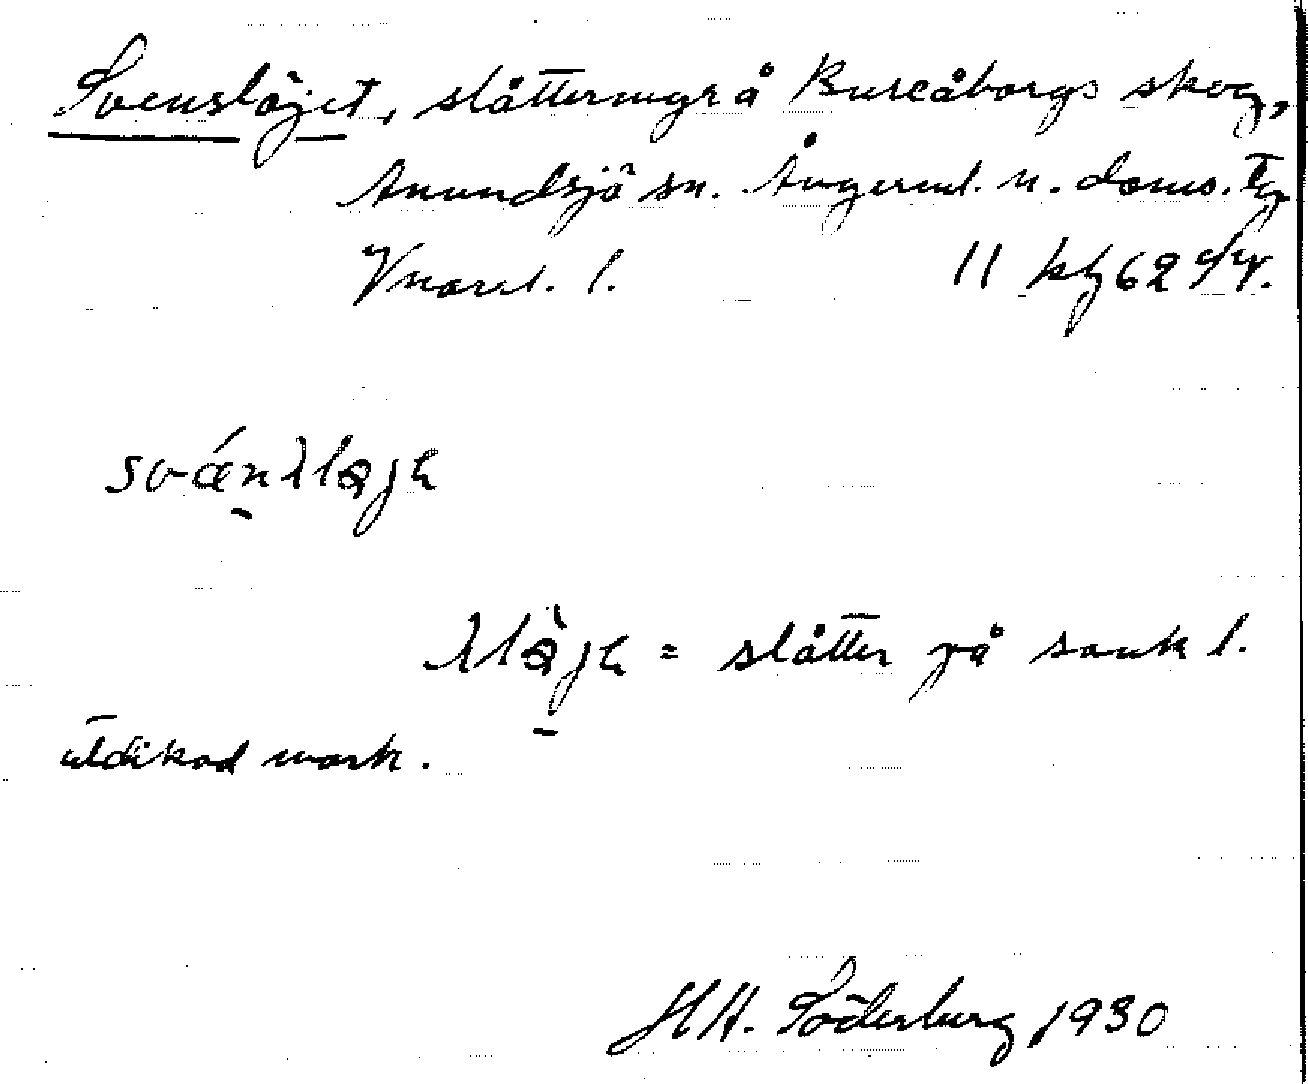 Svenslöjet, slåttermyr å Bureåborgs skog,
Anundsjö sn. Ångerml. n. doms. Tg
Vnorrl. l. 11 kbl 62
svánslɵjɛ
slɵ̀jɛ = slåtter på sank l.
utdikad mark.
H.H. Söderberg 1930